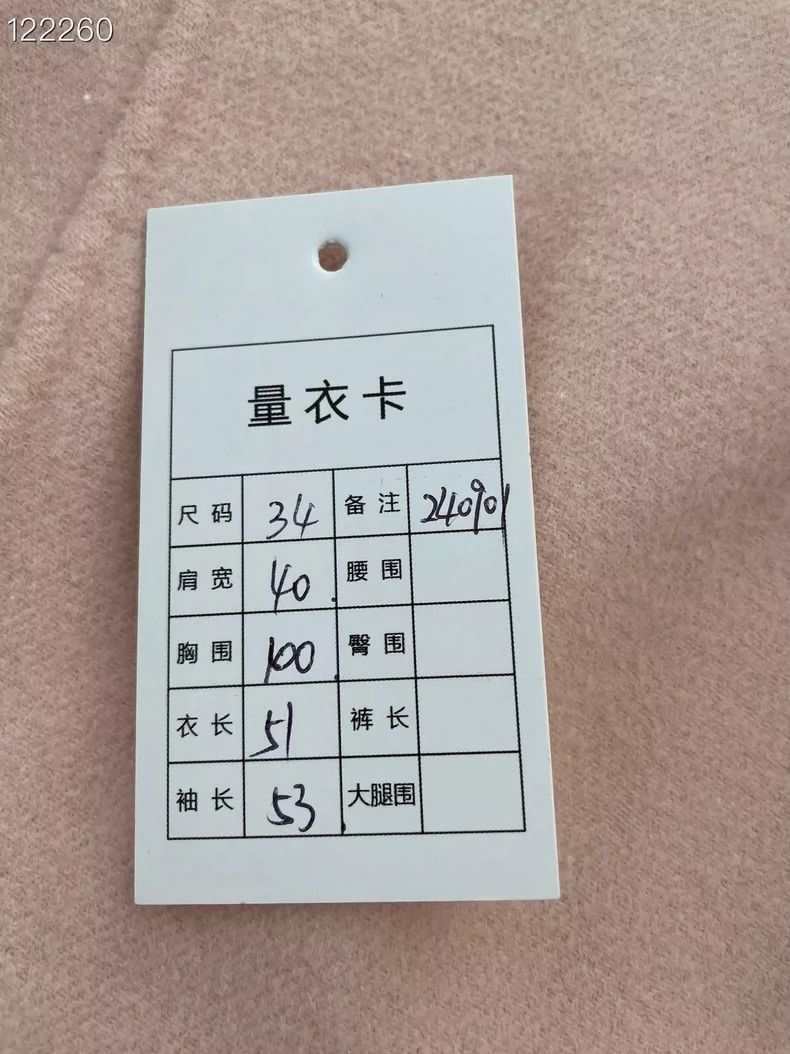 122260
量衣卡
尺码 34 备注 240901
肩宽 40 腰围
胸围 100 臀围
衣长 51 裤长
袖长 53 大腿围